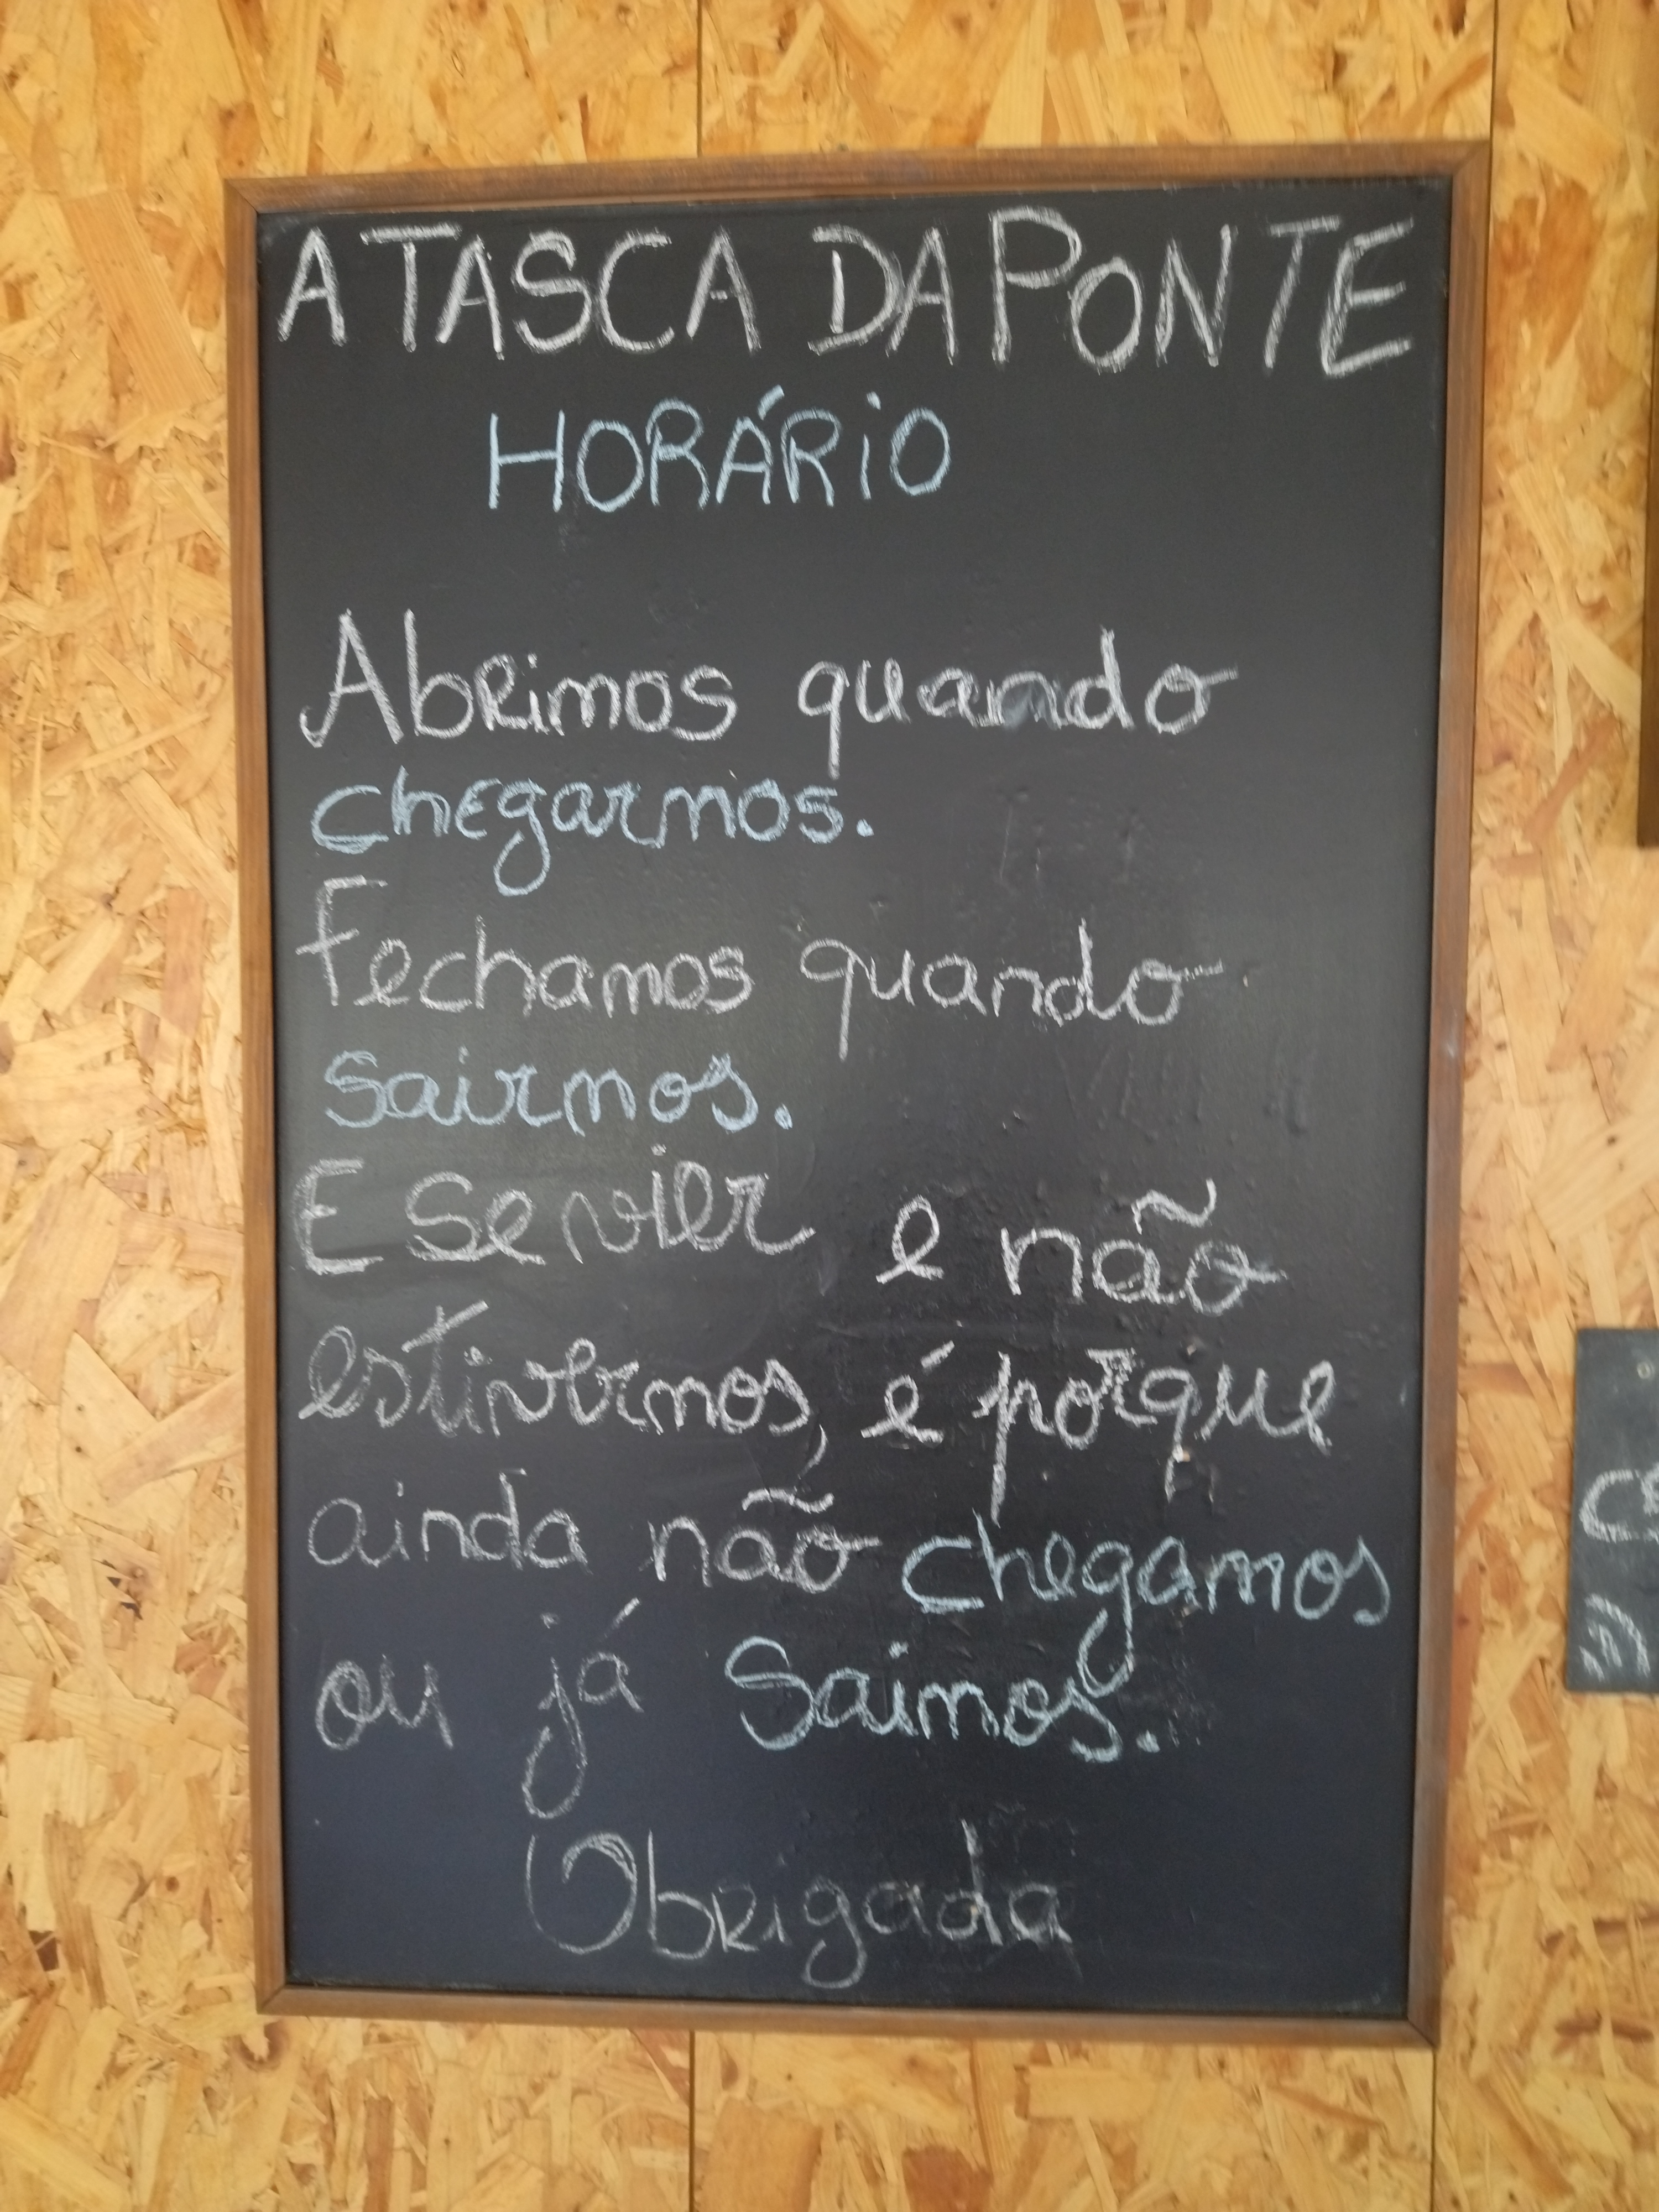 A TASCA DA PONTE
HORÁRiO
Abrimos quando
chegarmos.
Fechamos quando
sairmos.
E se vier e não
estivermos, é porque
ainda não chegamos
ou já saimos.
Obrigada